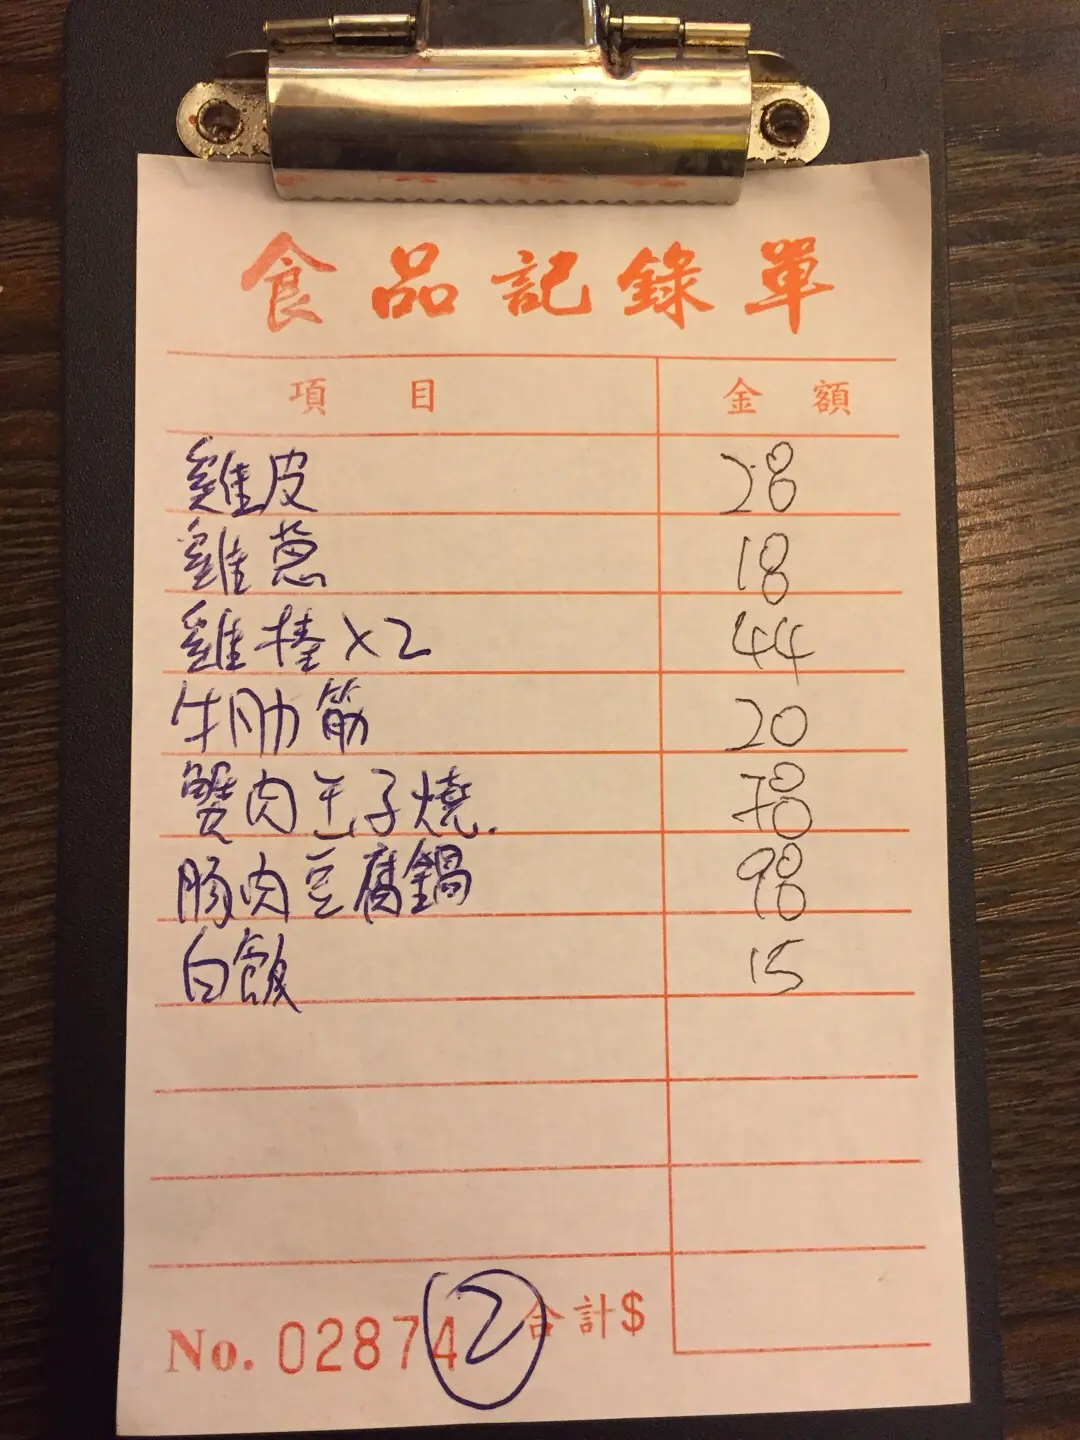 食品記錄單
項目 金額
雞皮 28
雞蔥 18
雞棒 x2 44
牛肋筋 20
蟹肉玉子燒. 78
豚肉豆腐鍋 98
白飯 15
No. 028742 合計$
2